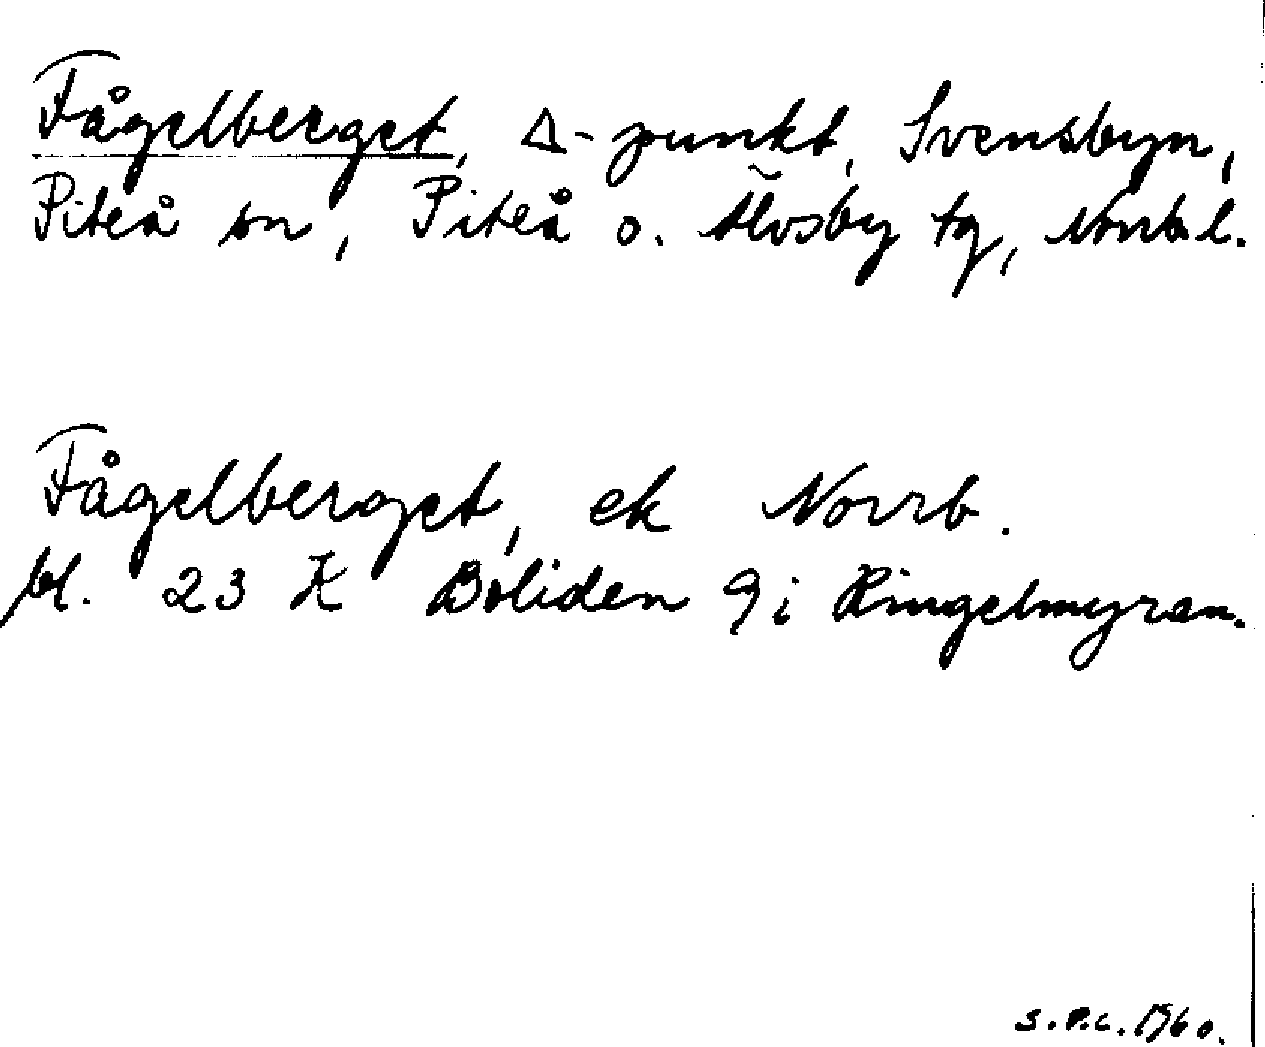 Fågelberget, Δ-punkt, Svensbyn,
Piteå sn, Piteå o. Älvsby tg, Norrb. l.
Fågelberget, ek Norrb.
bl. 23 K Boliden 9 i Ringelmyran.
S.P.C. 1960.